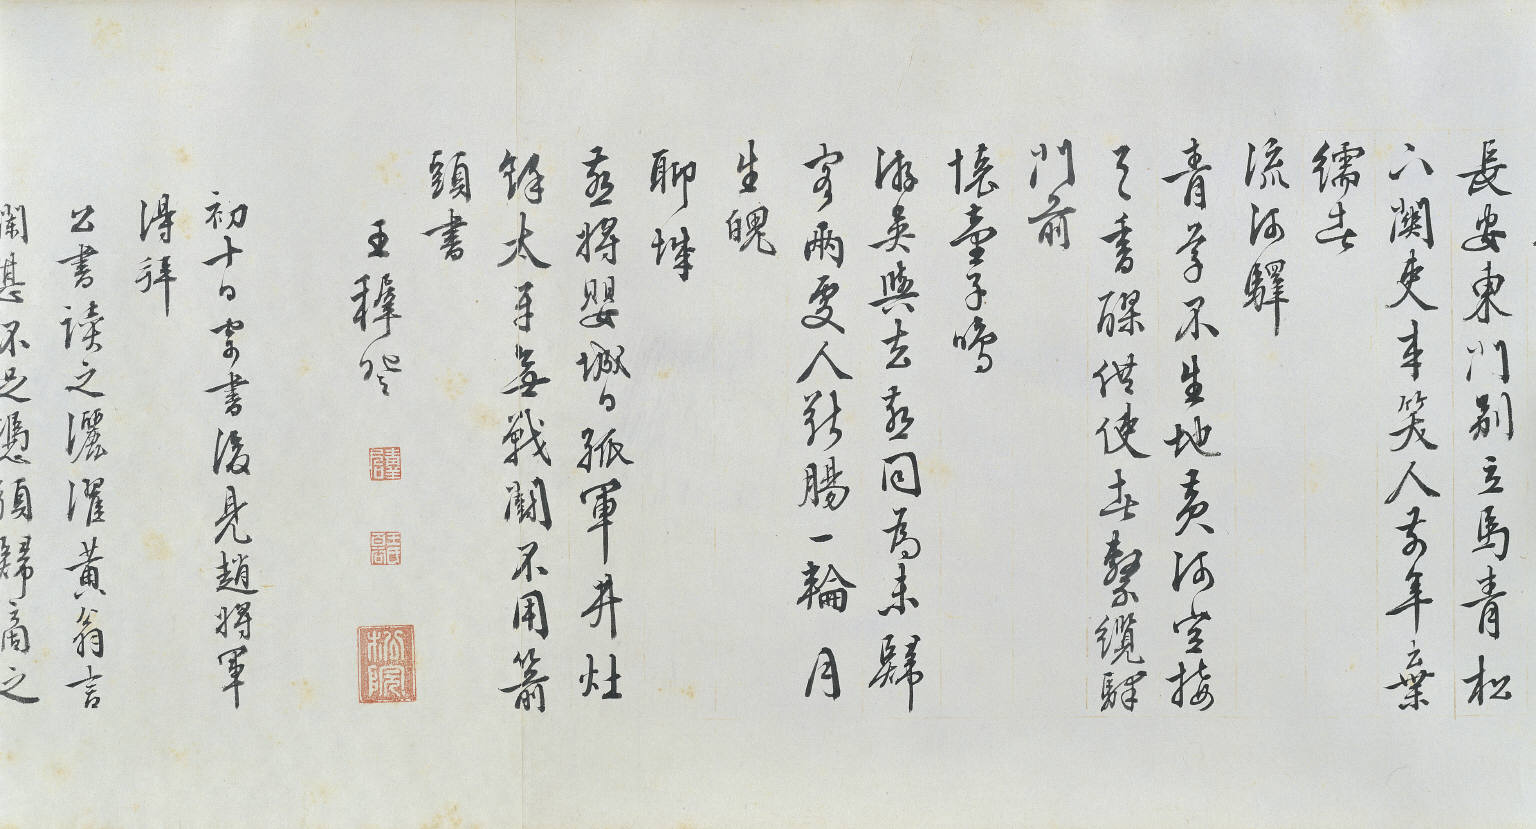 長安東門別立馬青松
下關吏来笑人前年棄
繻去
流河驛
青草不生地黄河空接
天香醪供使去繫纜驛
門前
懷童子鳴
游吴與去燕同為未歸
客兩處人斷腸一輪月
生魄
聊城
燕將嬰城日孤軍井灶
餘太平無戰鬪不用箭
頭書
王穉登
初十日寄書後見趙將軍
得拜
公書讀之灑濯黄翁言
闌甚不足憑須歸商之